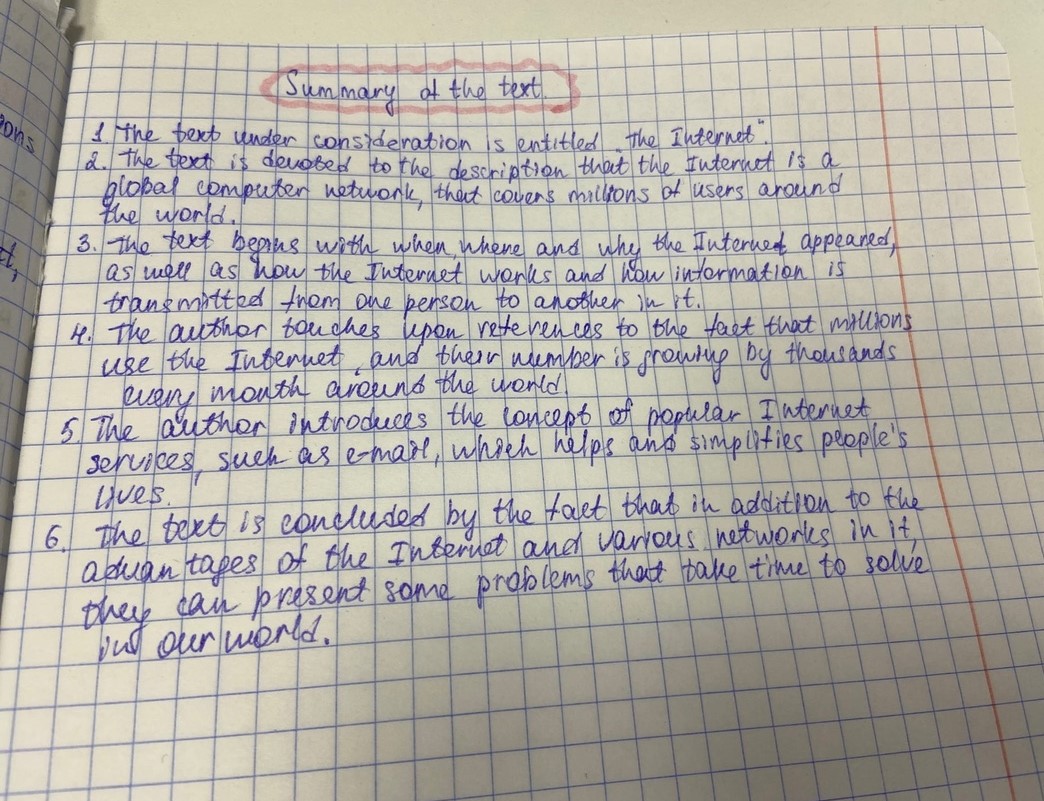 Summary of the text.
1 The text under consideration is entitled „The Internet".
2. The text is devoted to the description that the Internet is a
global computer network, that covers millions of users around
the world.
3. The text begins with when, where and why the Internet appeared,
as well as how the Internet works and how information is
transmitted from one person to another in it.
4. The author touches upon references to the fact that millions
use the Internet, and their number is growing by thousands
every month around the world.
5. The author introduces the concept of popular Internet
services, such as e-mail, which helps and simplifies people's
lives.
6. The text is concluded by the fact that in addition to the
advantages of the Internet and various networks in it,
they can present some problems that take time to solve
in our world.